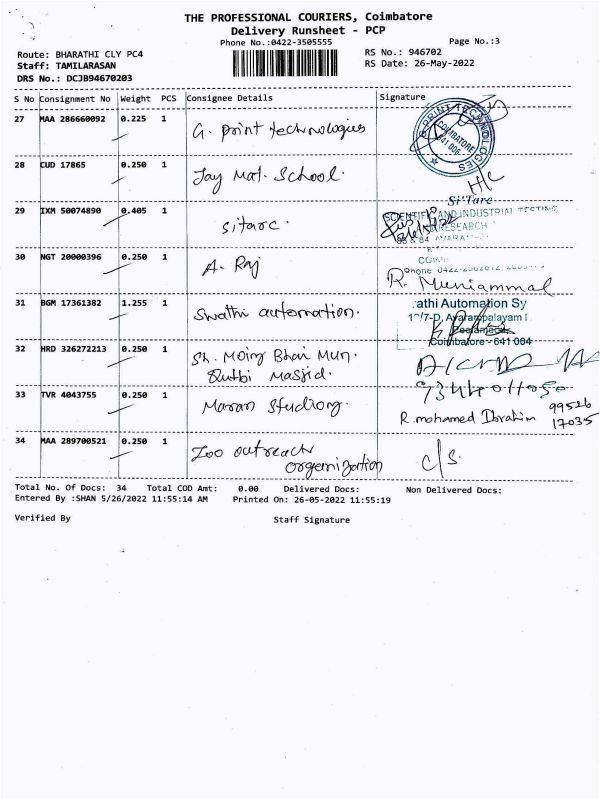 THE PROFESSIONAL COURIERS, Coimbatore
Delivery Runsheet - PCP
Phone No.:0422-3505555
Page No.:3
Route: BHARATHI CLY PC4
RS No.: 946702
Staff: TAMILARASAN
RS Date: 26-May-2022
DRS No.: DCJB94670203
S No Consignment No Weight PCS Consignee Details Signature
27 MAA 286660092 0.225 1 G. Print technologies
PRINT TECHNOLOGIES
COIMBATORE
641 006
28 CUD 17865 0.250 1 Jay Mat. School.
29 IXM 50074890 0.405 1 sitarc.
Si'Tarc
SCIENTIFIC AND INDUSTRIAL TESTING
RESEARCH
30 NGT 20000396 0.250 1 A. Raj
Phone 0422-
R. Muniammal
31 BGM 17361382 1.255 1 Swathi automation.
athi Automation Sy
Avarampalayam
Coimbatore - 641 004
32 HRD 326272213 0.250 1 Sh. Moiz Bhai Mun.
Qutbi Masjid.
33 TVR 4043755 0.250 1 Maran Studiong
R. mohamed Ibrahim 99526
17035
34 MAA 289700521 0.250 1 Zoo outreach
organization
C/S.
Total No. Of Docs: 34 Total COD Amt: 0.00 Delivered Docs: Non Delivered Docs:
Entered By :SHAN 5/26/2022 11:55:14 AM Printed On: 26-05-2022 11:55:19
Verified By Staff Signature